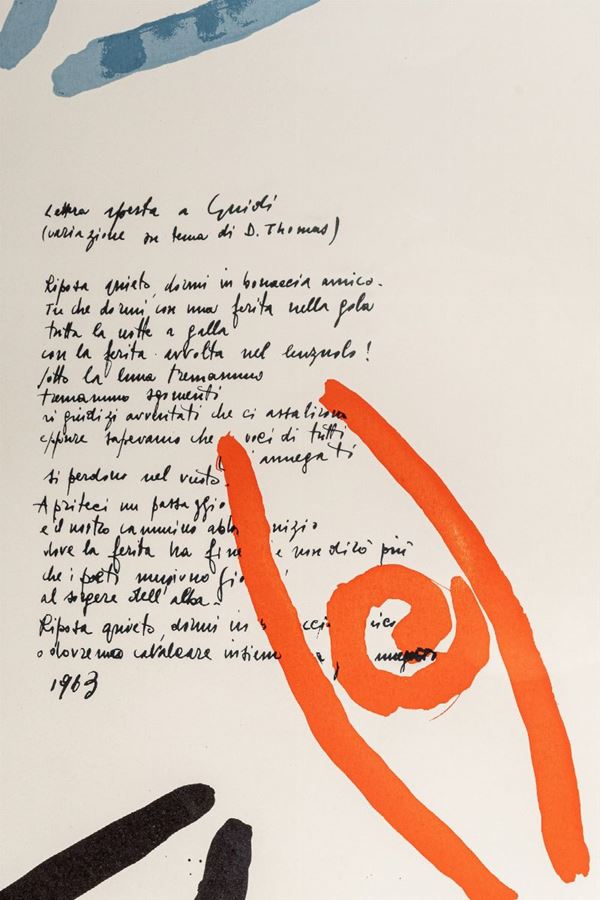 Lettera aperta a Guidi
(variazione su tema di D. Thomas)
Riposa quieto, dormi in bonaccia amico.
Tu che dormi con una ferita nella gola
tutta la notte a galla
con la ferita avvolta nel lenzuolo!
sotto la luna tremammo
tremammo sgomenti
ai giudizi avventati che ci assalirono
eppure sapevamo che voci di tutti
annegati
si perdono nel vuoto.
Apriteci un passaggio
e il nostro cammino abb nizio
dove la ferita ha fine e non dirò più
che i poeti muoiono gio
al sorgere dell'alba.
Riposa quieto, dormi in b ccia ico
o dovremo cavalcare insieme
1963